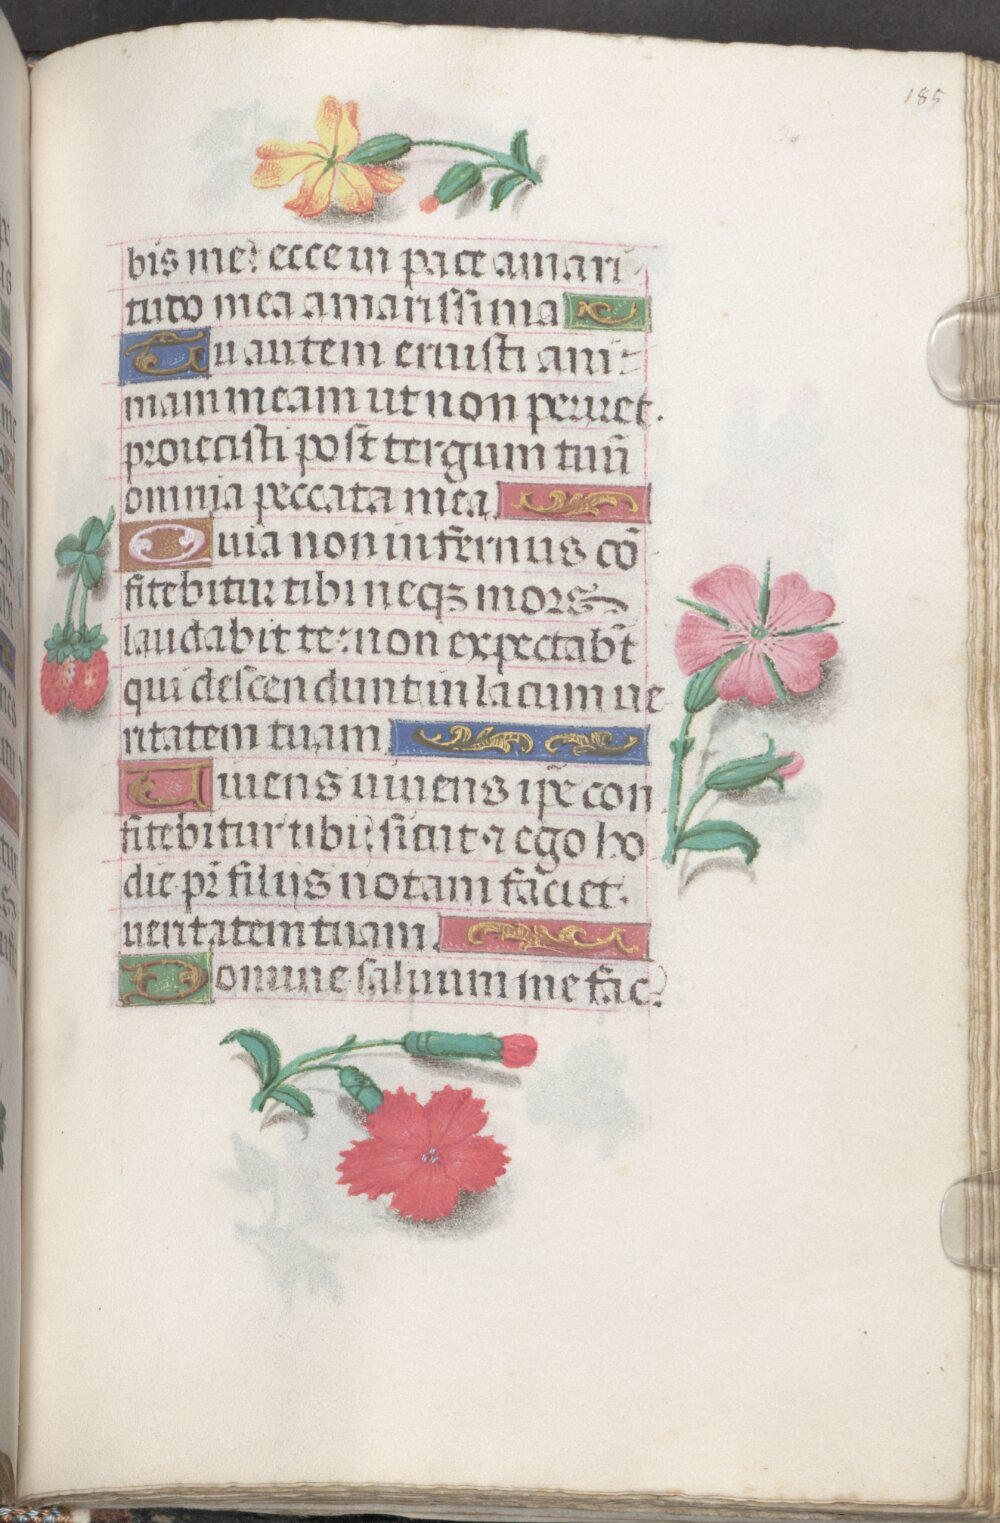 185
bis me: ecce in pace amari-
tudo mea amarissima
Tu autem eruisti ani-
mam meam ut non periret.
proiecisti post tergum tuũ
omnia peccata mea.
Quia non infernus cõ
fitebitur tibi neqꝫ mors
laudabit te: non expectabt̃
qui descendunt in lacum ue
ritatem tuam
Uiuens uiuens ip̃e con
fitebitur tibi: sicut ⁊ ego ho
die pr̃ filiis notam faciet.
ueritatem tuam.
Domine saluum me fac: